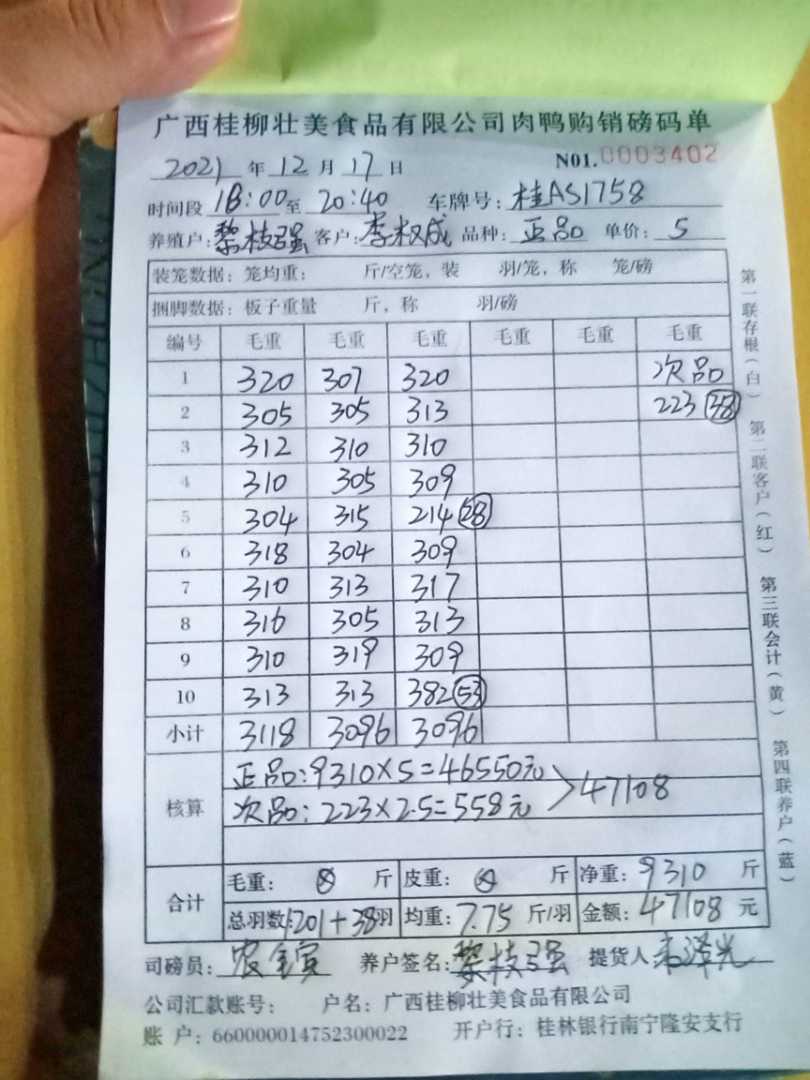 广西桂柳壮美食品有限公司肉鸭购销磅码单
2021 年 12 月 17 日 N01.0003402
时间段 18:00 至 20:40 车牌号: 桂AS1758
养殖户: 黎枝强 客户: 李权成 品种: 正品 单价: 5
装笼数据: 笼均重: 斤/空笼, 装 羽/笼, 称 笼/磅
捆脚数据: 板子重量 斤, 称 羽/磅
编号 毛重 毛重 毛重 毛重 毛重 毛重
1 320 307 320 次品
2 305 305 313 223 38
3 312 310 310
4 310 305 309
5 304 315 214 28
6 318 304 309
7 310 313 317
8 316 305 313
9 310 319 309
10 313 313 382 53
小计 3118 3096 3096
核算 正品:9310×5=46550元 >47108
次品: 223×2.5=558元
合计 毛重: ⊗ 斤 皮重: ⊗ 斤 净重: 9310 斤
总羽数: 1201+38羽 均重: 7.75 斤/羽 金额: 47108 元
司磅员: 养户签名: 黎枝强 提货人
公司汇款账号: 户名: 广西桂柳壮美食品有限公司
账 户: 660000014752300022 开户行: 桂林银行南宁隆安支行
第一联存根(白) 第二联客户(红) 第三联会计(黄) 第四联养户(蓝)